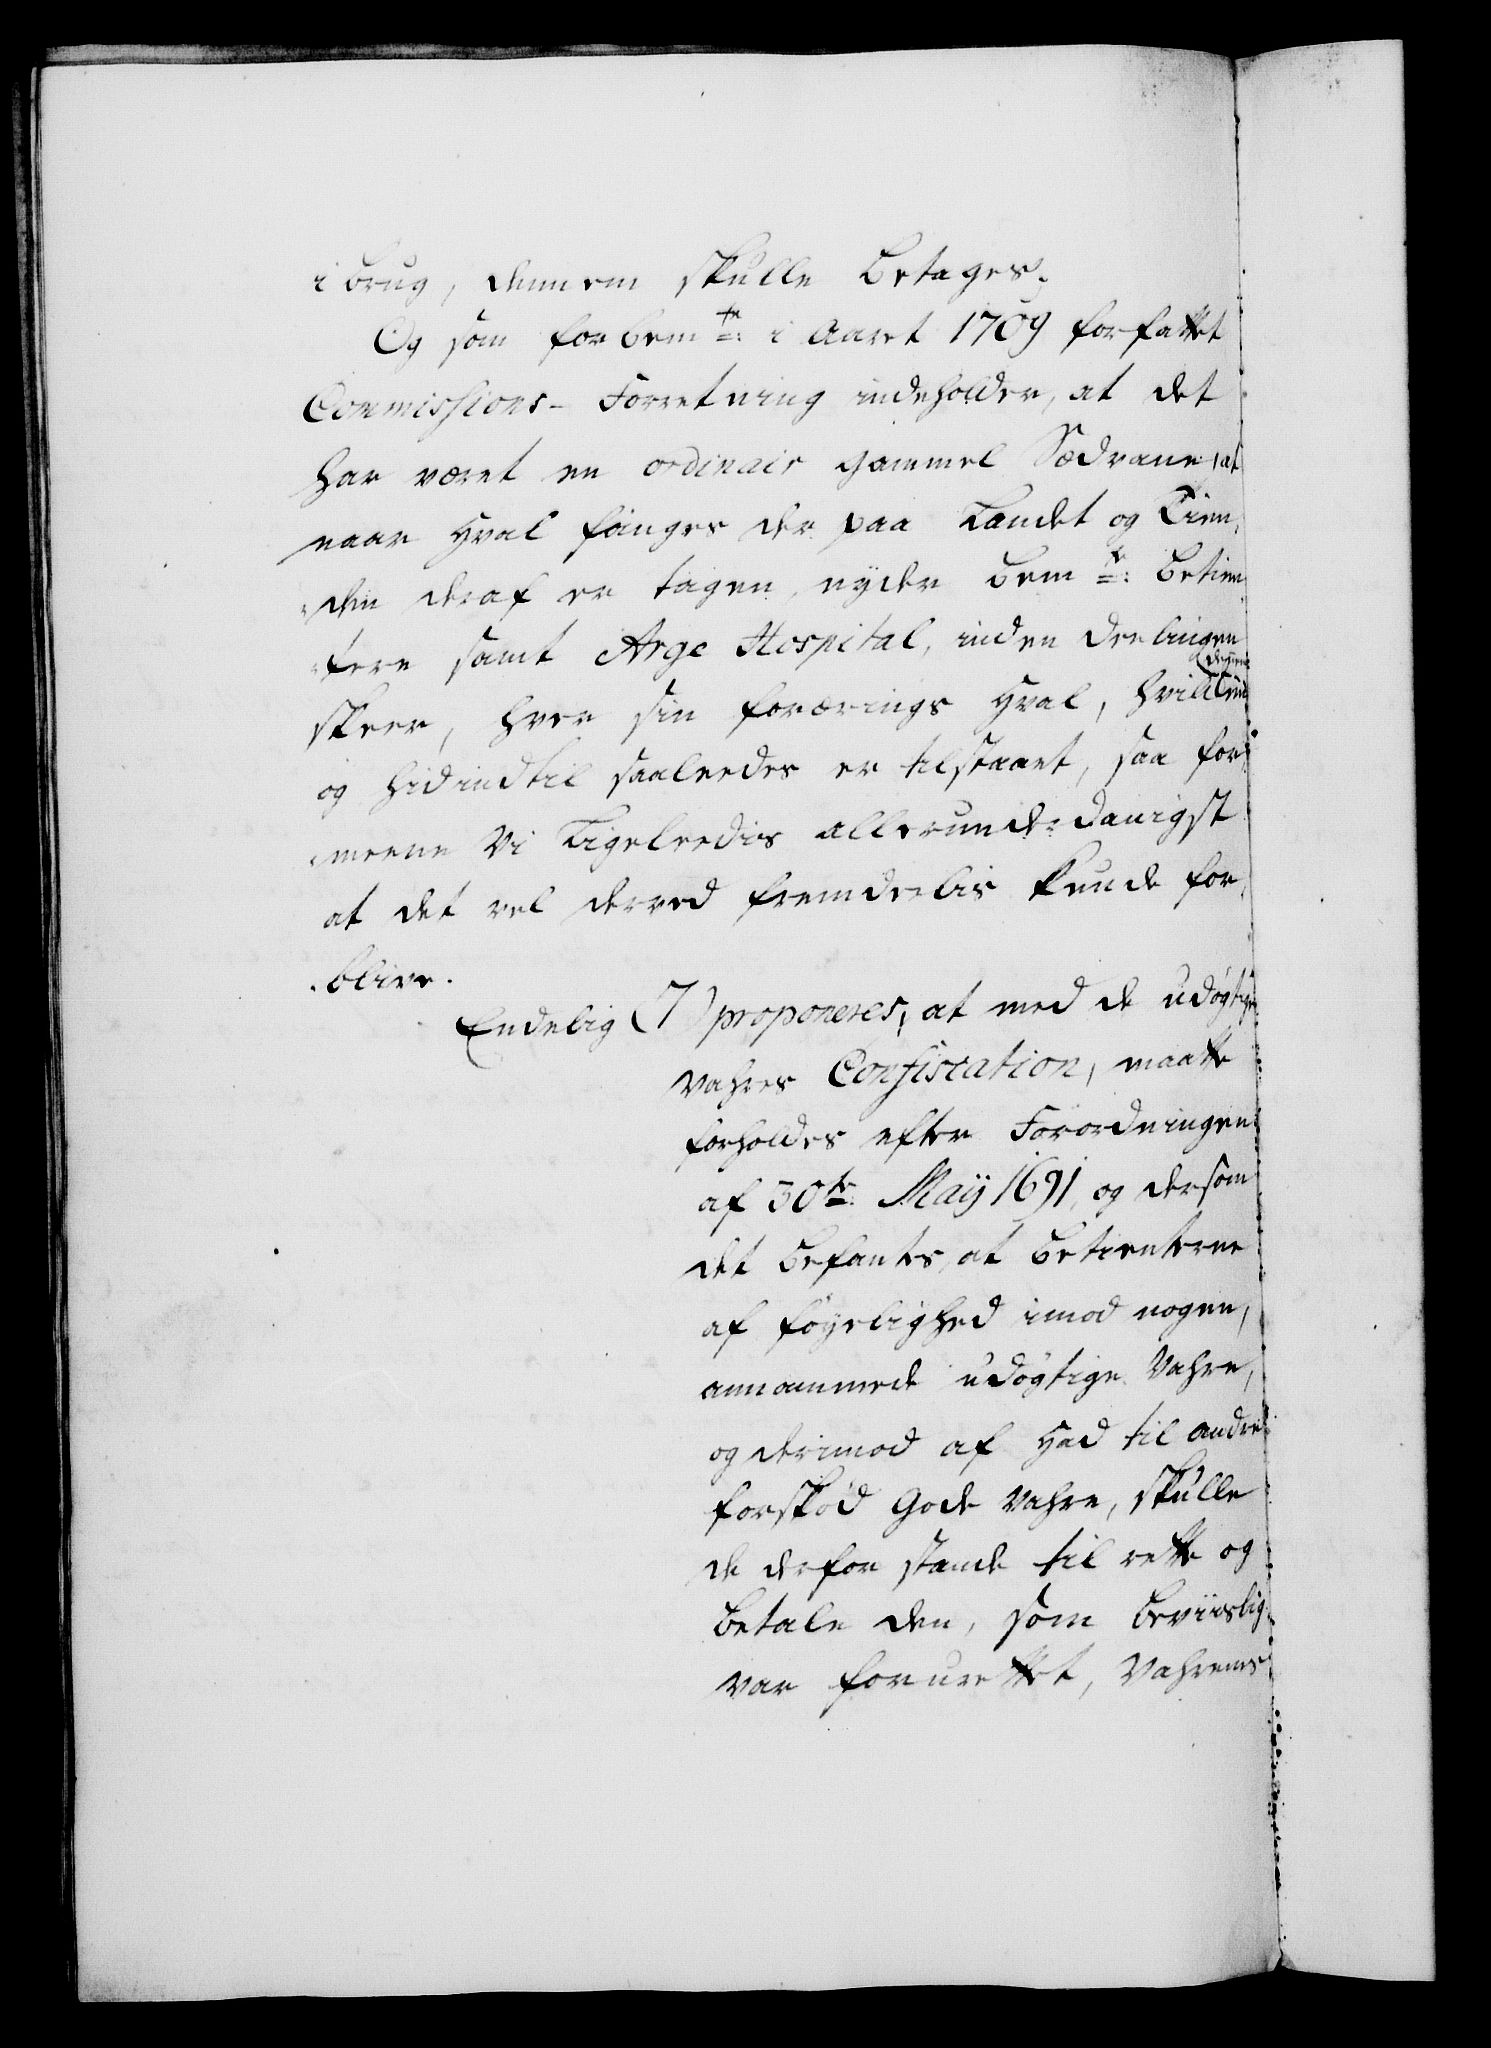 i brug, dennem skulle betages.
Og som forbem.te i Aaret 1709 forfattet
Commissions-Forretning indeholder, at det
har været en ordinair gammel Sædvane, at
naar Hval fanges der paa Landet og Tien-
-den deraf er tagen, nyder bem.te Betien-
-tere samt Arge Hospital, inden Deelingen
skeer, hver sin forærings Hval, hvilket
og hidindtil saaleedes er tilstaaet, saa for-
-meene Vi Ligeleedis allerunderdanigst
at det vel derved fremdelis kunde for-
-blive.
Endelig (7) proponeres, at med de udögtige
Vahres Confiscation, maatte
forholdes efter Forordningen
af 30te Maij 1691, og dersom
det befantes, at betienterne
af föyelighed imod nogen,
annammede udögtige Vahre,
og derimod af Had til andre
forskød Gode Vahre, skulle
de derfor stande til rette og
betale den, som beviislig
var forurettet, Vahrenes